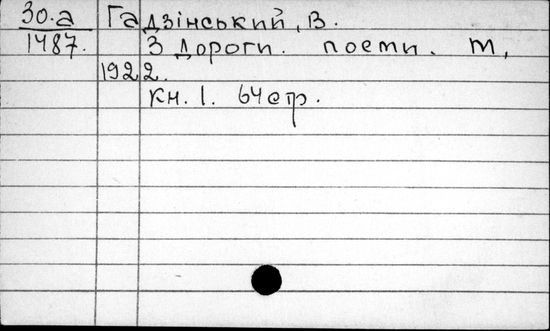 30.а Гадзінський, В.
1487. З дороги. поеми. М,
1922.
Кн. 1. 64 стр.